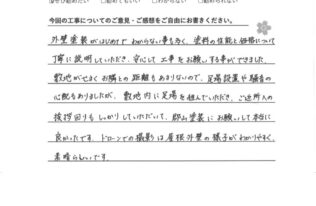 今回の工事についてのご意見・ご感想をご自由にお書きください。
外壁塗装がはじめてわからない事も多く、塗料の性能と価格について
丁寧に説明していただき、安心して工事をお願いする事ができました。
敷地がせまくお隣との距離もあまりないので、足場設置や騒音の
心配もありましたが、敷地内に足場を組んでいただき、ご近所への
挨拶回りもしっかりしていただいて、郡山塗装にお願いして本当に
良かったです。ドローンでの撮影は屋根外壁の様子がわかりやすく、
素晴らしいです。